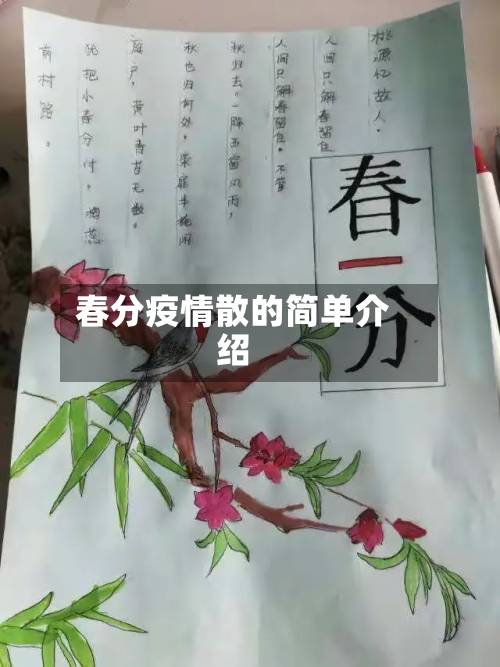 桃源忆故人·
人间只解春留住
人间只解春留住。不管
秋归去。一阵西窗风雨，
秋也归何处。柴扉半掩闲
庭户，黄叶青苔无数。
犹把小春分付，梅蕊
前村路。
春分
春分疫情散的简单介
绍